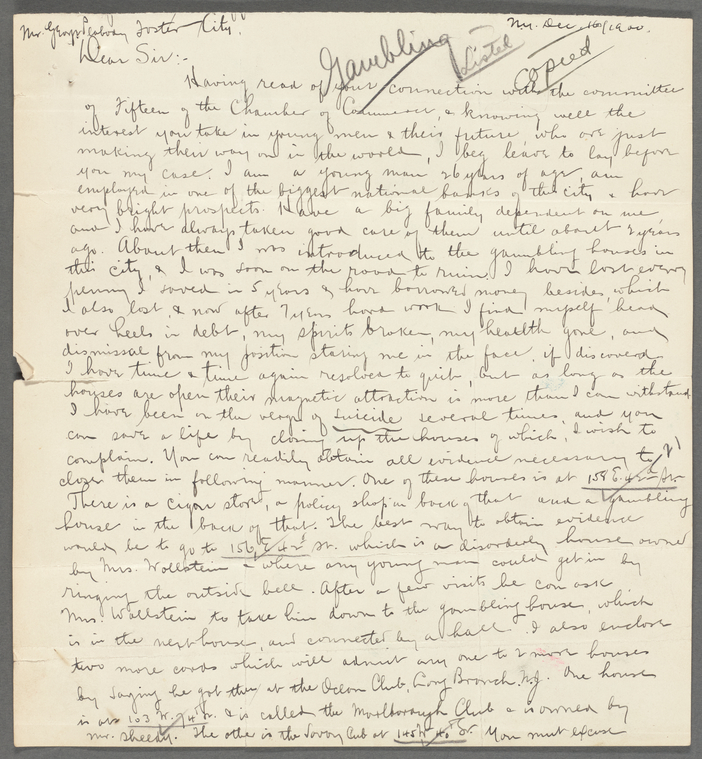 Mr. George Peabody Foster City.
N.Y. Dec. 1900.
Gambling
Listed
Copied
Dear Sir:-
Having read of your connection with the committee
of Fifteen of the Chamber of Commerce, & knowing well the
interest you take in young men & their future, who are just
making their way on in the world, I beg leave to lay before
you my case. I am a young man 26 years of age, am
employed in one of the biggest national banks of the city & have
very bright prospects. Have a big family dependent on me,
and I have always taken good care of them until about 2 years
ago. About then I was introduced to the gambling houses in
this city, & I was soon on the road to ruin. I have lost every
penny I saved in 5 years & have borrowed money besides, which
I also lost, & now after 7 years hard work I find myself head
over heels in debt, my spirits broken, my health gone, and
dismissal from my position staring me in the face, if discovered.
I have time & time again resolved to quit, but as long as the
houses are open their magnetic attraction is more than I can withstand
I have been on the verge of suicide several times, and you
can save a life by closing up the houses of which, I wish to
complain. You can readily obtain all evidence necessary to
close them in following manner. One of these houses is at 158 E. 42nd St.
There is a cigar store, a policy shop in back of that and a gambling
house in the back of that. The best way to obtain evidence
would be to go to 156 E 42d St. which is a disorderly house owned
by Mrs. Wollstein & where any young man could get in by
ringing the outside bell. After a few visits he can ask
Mrs. Wallstein to take him down to the gambling house, which
is in the next house, and connected by a hall. I also enclose
two more cards which will admit any one to 2 more houses
by saying he got them at the Ocean Club, Long Branch, N.J. One house
is at 103 W. St. & is called the Marlborough Club & is owned by
Mr. Sheedy. The other is the Savoy Club at 145 W. 40 St. You must excuse